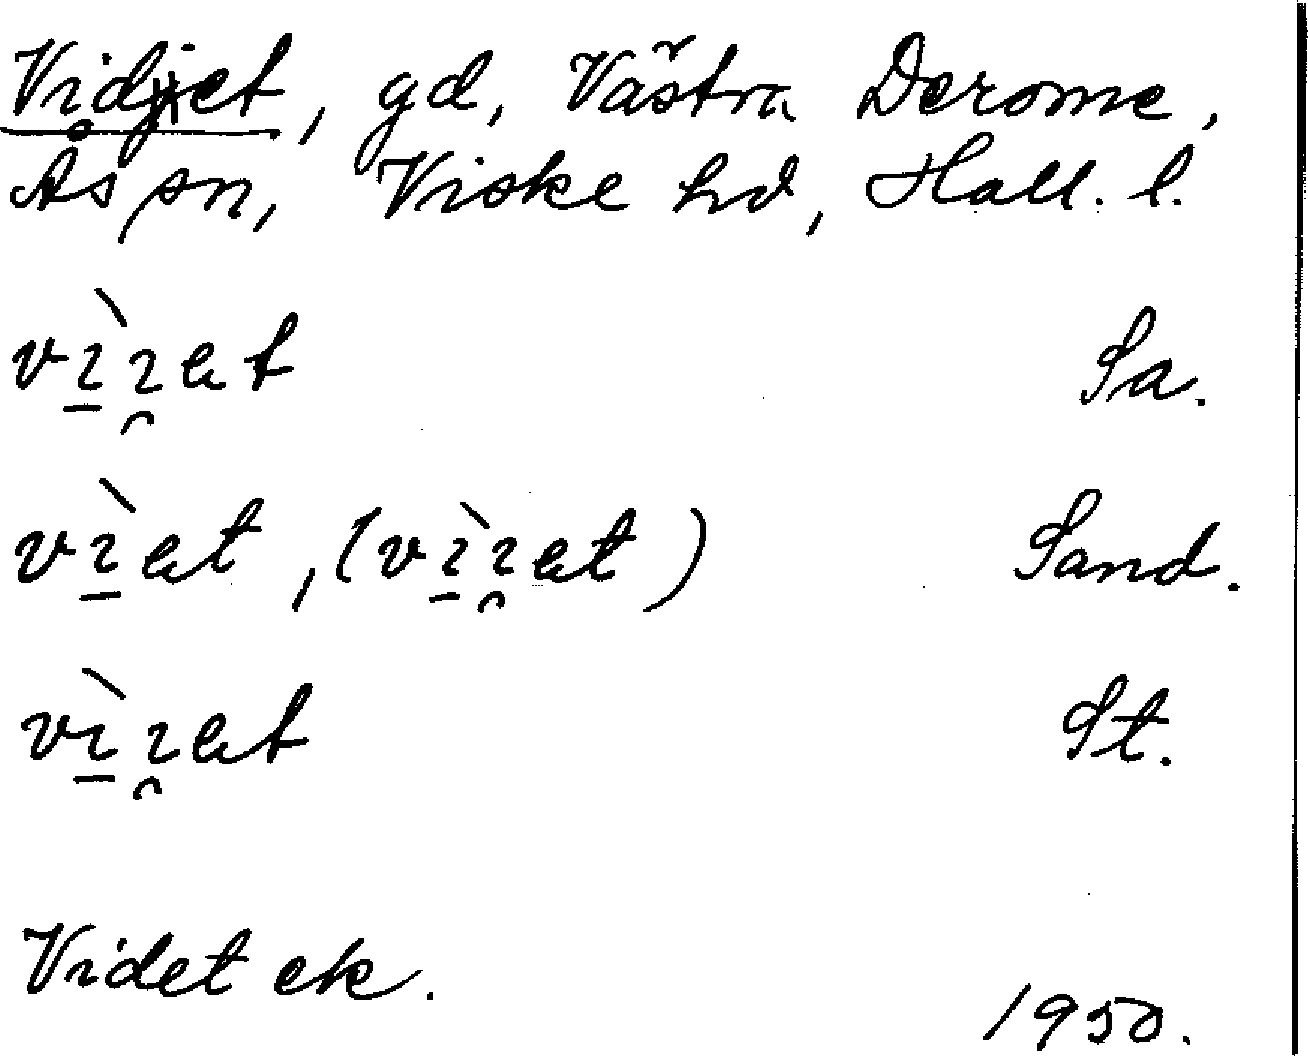 Vidjet, gd, Västra Derome,
Ås sn, Viske hd, Hall. l.
vɪ̠̀ɪ̯et Sa.
vɪ̠̀et, (vɪ̠̀ɪ̯et) Sand.
vɪ̠̀ɪ̯et St.
Videt ek.
1950.